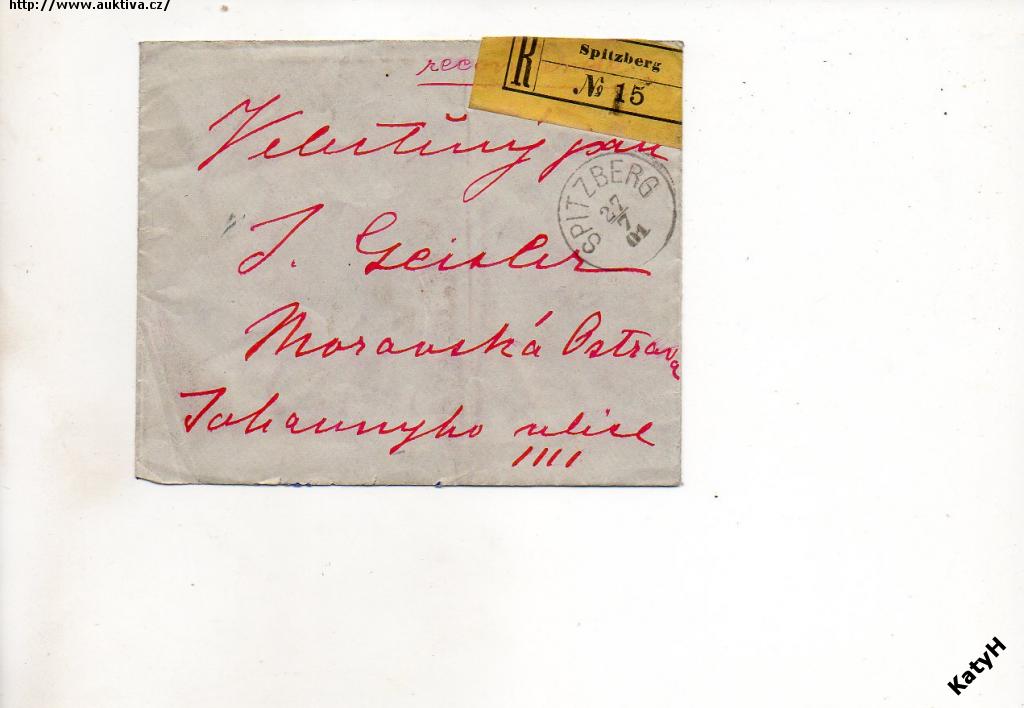 http://www.auktiva.cz/
R
Spitzberg
№ 15
Velectěný pan
SPITZBERG
27/7
01
J. Geisler
Moravská Ostrava
Johannyho ulice
KatyH